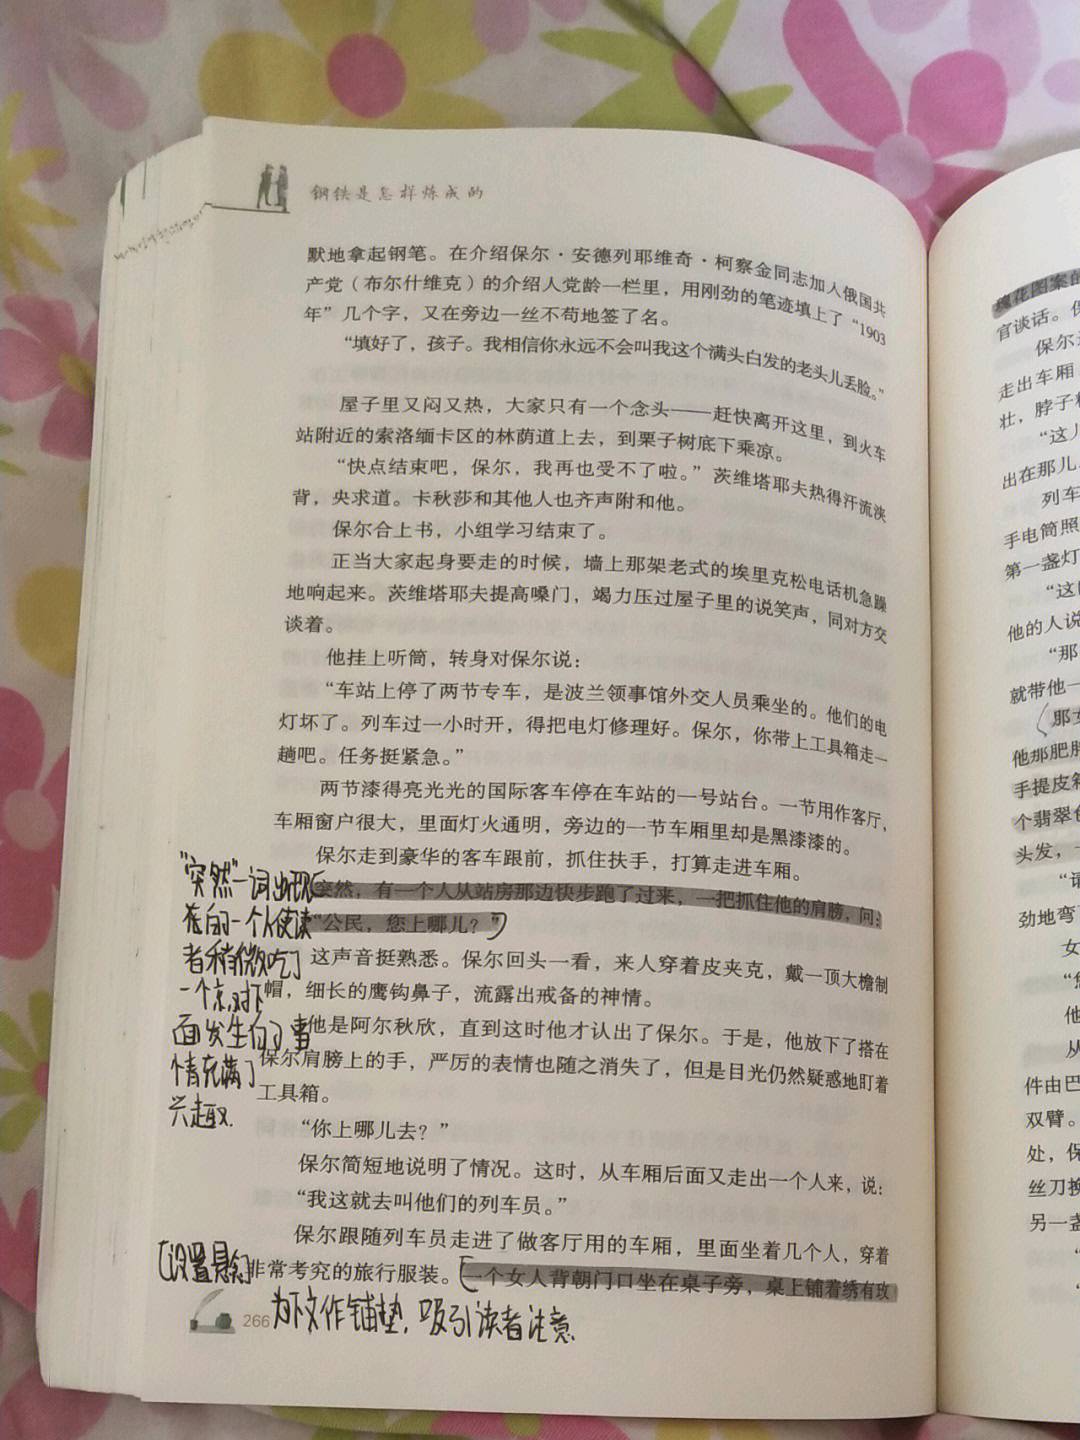 钢铁是怎样炼成的
默地拿起钢笔。在介绍保尔·安德列耶维奇·柯察金同志加入俄国共
产党（布尔什维克）的介绍人党龄一栏里，用刚劲的笔迹填上了“1903
年”几个字，又在旁边一丝不苟地签了名。
“填好了，孩子。我相信你永远不会叫我这个满头白发的老头儿丢脸。”
屋子里又闷又热，大家只有一个念头——赶快离开这里，到火车
站附近的索洛缅卡区的林荫道上去，到栗子树底下乘凉。
“快点结束吧，保尔，我再也受不了啦。”茨维塔耶夫热得汗流浃
背，央求道。卡秋莎和其他人也齐声附和他。
保尔合上书，小组学习结束了。
正当大家起身要走的时候，墙上那架老式的埃里克松电话机急躁
地响起来。茨维塔耶夫提高嗓门，竭力压过屋子里的说笑声，同对方交
谈着。
他挂上听筒，转身对保尔说：
“车站上停了两节专车，是波兰领事馆外交人员乘坐的。他们的电
灯坏了。列车过一小时开，得把电灯修理好。保尔，你带上工具箱走一
趟吧。任务挺紧急。”
两节漆得亮光光的国际客车停在车站的一号站台。一节用作客厅，
车厢窗户很大，里面灯火通明，旁边的一节车厢里却是黑漆漆的。
保尔走到豪华的客车跟前，抓住扶手，打算走进车厢。
突然，有一个人从站房那边快步跑了过来，一把抓住他的肩膀，问：
“公民，您上哪儿？”
这声音挺熟悉。保尔回头一看，来人穿着皮夹克，戴一顶大檐制
帽，细长的鹰钩鼻子，流露出戒备的神情。
他是阿尔秋欣，直到这时他才认出了保尔。于是，他放下了搭在
保尔肩膀上的手，严厉的表情也随之消失了，但是目光仍然疑惑地盯着
工具箱。
“你上哪儿去？”
保尔简短地说明了情况。这时，从车厢后面又走出一个人来，说：
“我这就去叫他们的列车员。”
保尔跟随列车员走进了做客厅用的车厢，里面坐着几个人，穿着
非常考究的旅行服装。一个女人背朝门口坐在桌子旁，桌上铺着绣有玫
266
“突然”一词出现
在的一个人使读
者稍微吃了
一个京,对下
面发生的了事
情充满了
兴趣.
[设置悬念]
为下文作铺垫,吸引读者注意
瑰花图案的
官谈话。保
保尔
走出车厢
壮，脖子
“这儿
出在那儿
列车
手电筒照
第一盏灯
“这
他的人说
“那
就带他一
那女
他那肥胖
手提皮箱
个翡翠
头发，
“请
劲地弯
女
他
从
件由巴
双臂。
处，保
丝刀换
另一盏